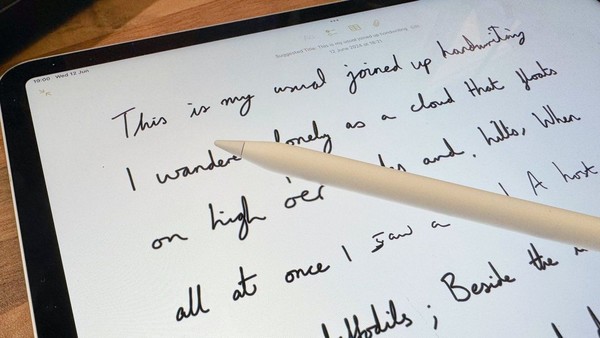 19:00 Wed 12 Jun
Suggested Title: This is my usual joined up handwriting
12 June 2024 at
This is my usual joined up handwriting
I wandere lonely as a cloud that floats
on high o'er and hills, When
all at once I saw a A host
Beside the